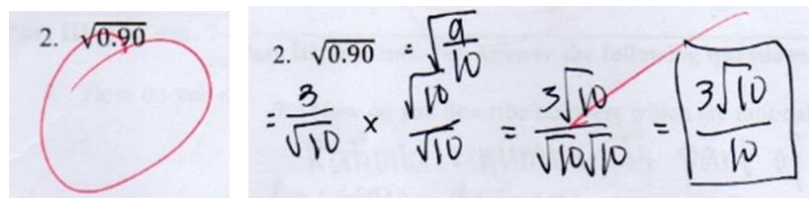 2. √0.90
2. √0.90 = √(9/10)
= 3/√10 × √10/√10 = 3√10/√10√10 = 3√10/10